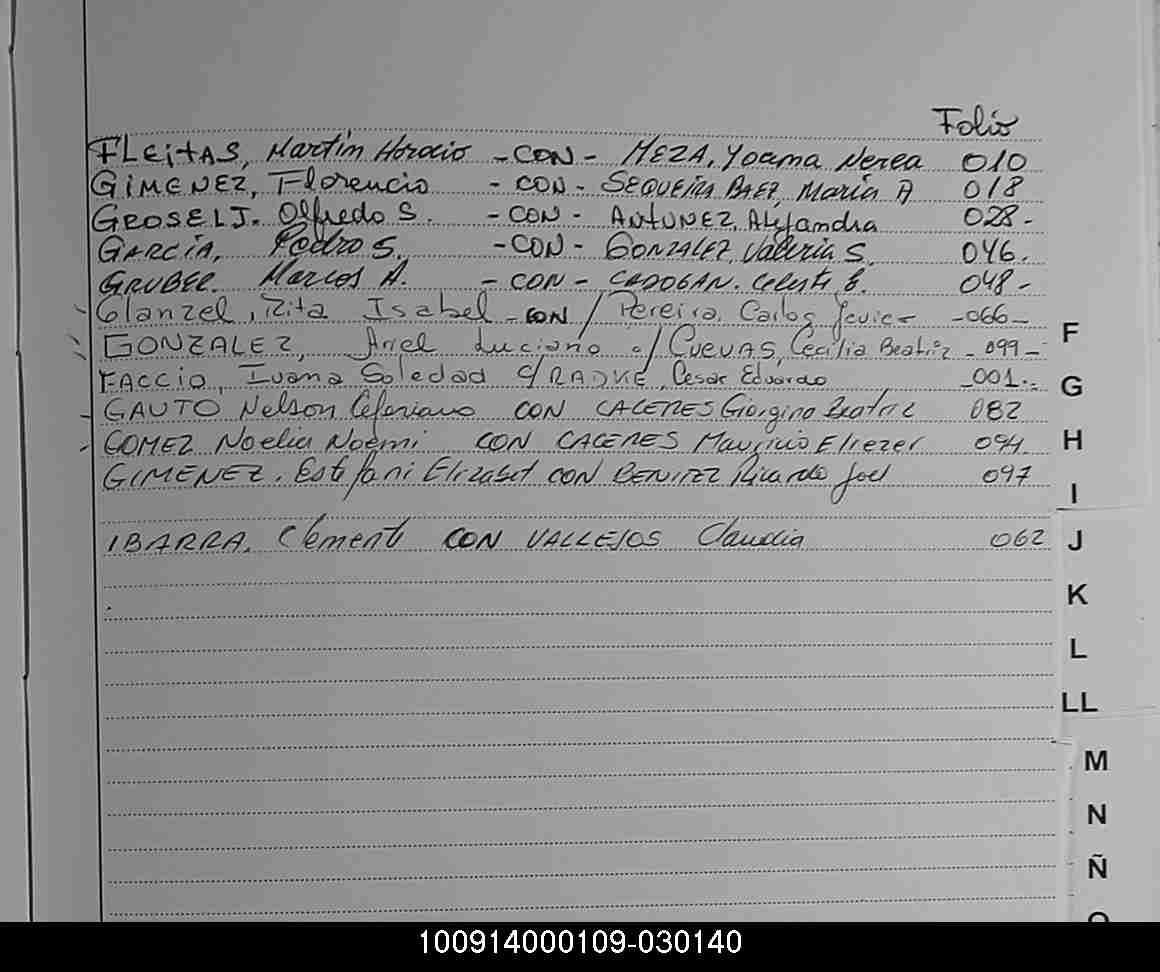 Folio
FLEITAS, Martin Horacio - CON - MEZA, Yoama Nerea 010
GIMENEZ, Florencio - CON - SEQUEIRA BAEZ, Maria A 018
GROSELJ. Alfredo S. - CON - ANTUNEZ, Alejandra 028 -
GARCÍA, Pedro S. - CON - GONZALEZ, Valeria S. 046.
GRUBER. Marcos A. - CON - CADOGAN. Celeste E. 048 -
Glanzel, Rita Isabel - CON / Pereira, Carlos Javier -066-
GONZALEZ, Ariel Luciano c/ CUEVAS, Cecilia Beatriz - 099 -
FACCIO, Ivana Soledad C/ RADKE, Cesar Eduardo -001-.
GAUTO Nelson Ceferiano CON CACERES Giorgina Beatriz 082
GOMEZ Noelia Noemi CON CACERES Mauricio Eliezer 094
GIMENEZ. Estefani Elizabet CON BENITEZ Ricardo Joel 097
IBARRA, Clemente CON VALLEJOS Claudia 062
F
G
H
I
J
K
L
LL
M
N
Ñ
O
100914000109-030140